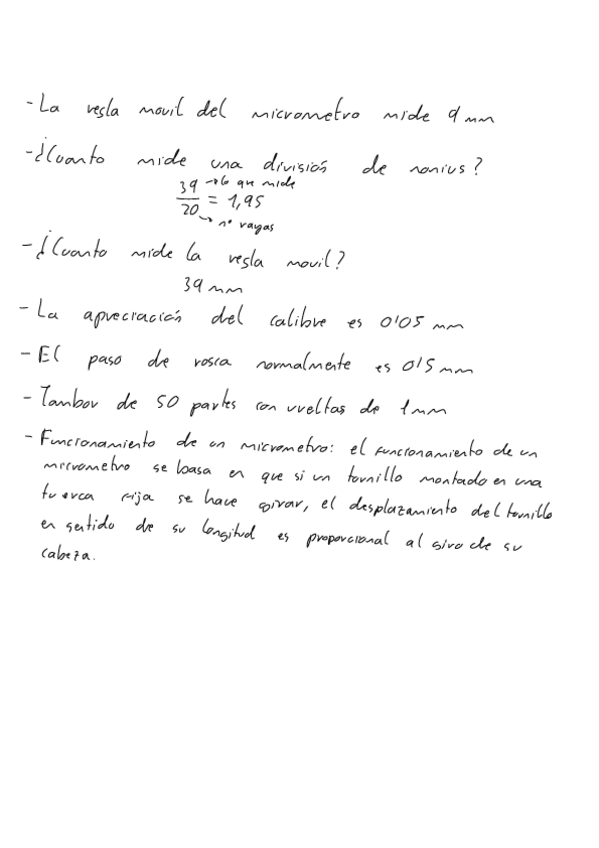 - La regla movil del micrometro mide 9 mm
- ¿Cuanto mide una división de nonius?
39 → lo que mide
20 = 1,95
→ nº rayas
- ¿Cuanto mide la regla movil?
39 mm
- La apreciación del calibre es 0'05 mm
- El paso de rosca normalmente es 0'5 mm
- Tambor de 50 partes con vueltas de 1mm
- Funcionamiento de un micrometro: el funcionamiento de un
micrometro se basa en que si un tornillo montado en una
tuerca fija se hace girar, el desplazamiento del tornillo
en sentido de su longitud es proporcional al giro de su
cabeza.